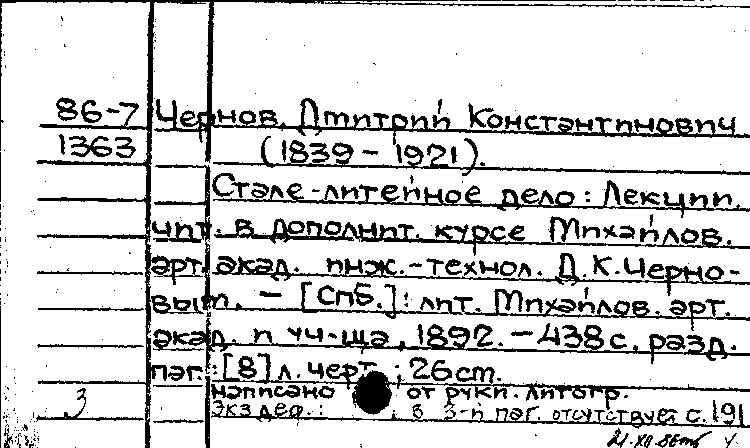 86-7 Чернов, Дмитрий Константинович
1363 (1839 – 1921).
Стале-литейное дело: Лекции,
чит. в дополнит. курсе Михайлов.
арт. акад. инж.-технол. Д.К.Черно-
вым. – [Спб.]: лит. Михайлов. арт.
акад. и уч-ща, 1892. – 438 с. разд.
паг.: [8] л. черт.; 26 см.
написано от руки. литогр.
3 Экз деф.: в 3-й паг. отсутствует с. 191